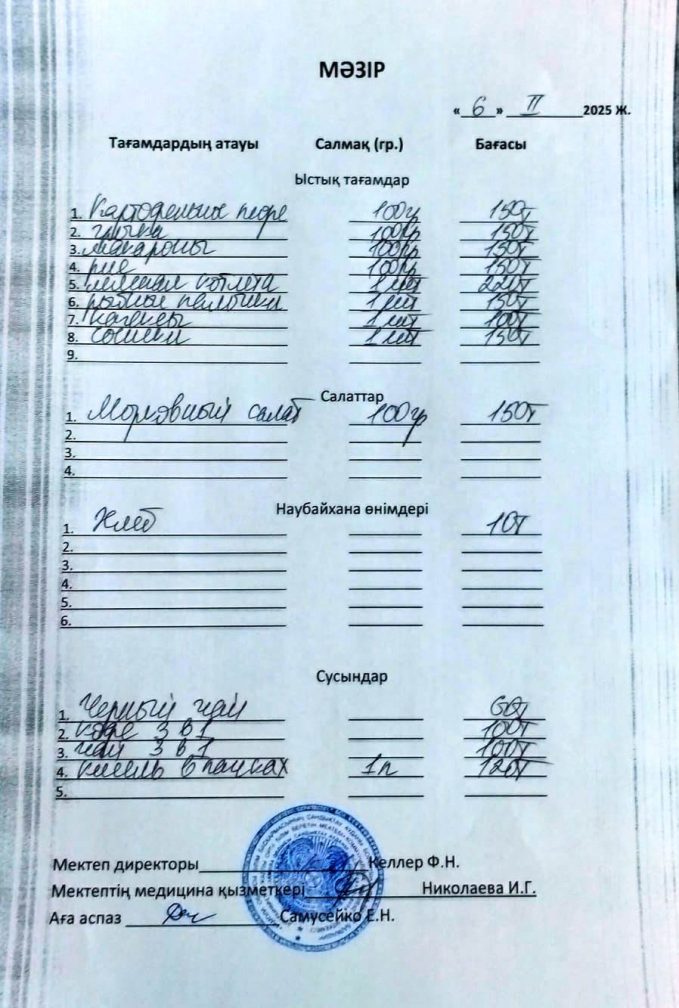 МӘЗІР
« 6 » II 2025 Ж.
Тағамдардың атауы Салмақ (гр.) Бағасы
Ыстық тағамдар
1. Картофельное пюре 100гр 150т
2. гречка 100гр 150т
3. макароны 100гр 150т
4. рис 100гр 150т
5. котлета 1 шт
6. рыбные 1 шт 150т
7. 1 шт 100т
8. сосиски 1 шт 150т
9.
Салаттар
1. Морковный салат 100гр 150т
2.
3.
4.
Наубайхана өнімдері
1. Хлеб 10т
2.
3.
4.
5.
6.
Сусындар
1. Черный чай 60т
2. кофе 3 в 1 100т
3. чай 3 в 1 100т
4. кисель в пачках 1п 120т
5.
Мектеп директоры Келлер Ф.Н.
Мектептің медицина қызметкері Николаева И.Г.
Аға аспаз Самусейко Е.Н.